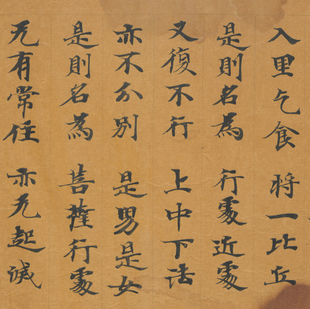 入里乞食 將一比丘
是則名為 行處近處
又復不行 上中下法
亦不分別 是男是女
是則名為 菩薩行處
无有常住 亦无起滅